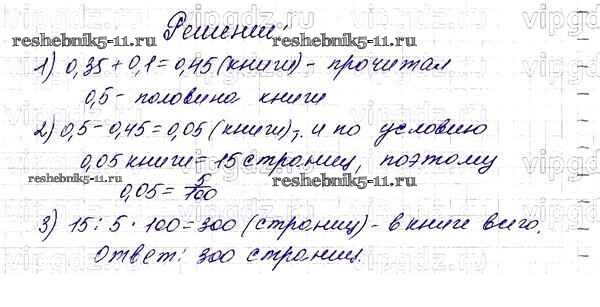 Решение:
1) 0,35 + 0,1 = 0,45 (книги) - прочитал
0,5 - половина книги
2) 0,5 - 0,45 = 0,05 (книги), и по условию
0,05 книги = 15 страниц, поэтому
0,05 = 5/100
3) 15 : 5 · 100 = 300 (страниц) - в книге всего.
Ответ: 300 страниц.
reshebnik5-11.ru
reshebnik5-11.ru
reshebnik5-11.ru
reshebnik5-11.ru
vipgdz.ru